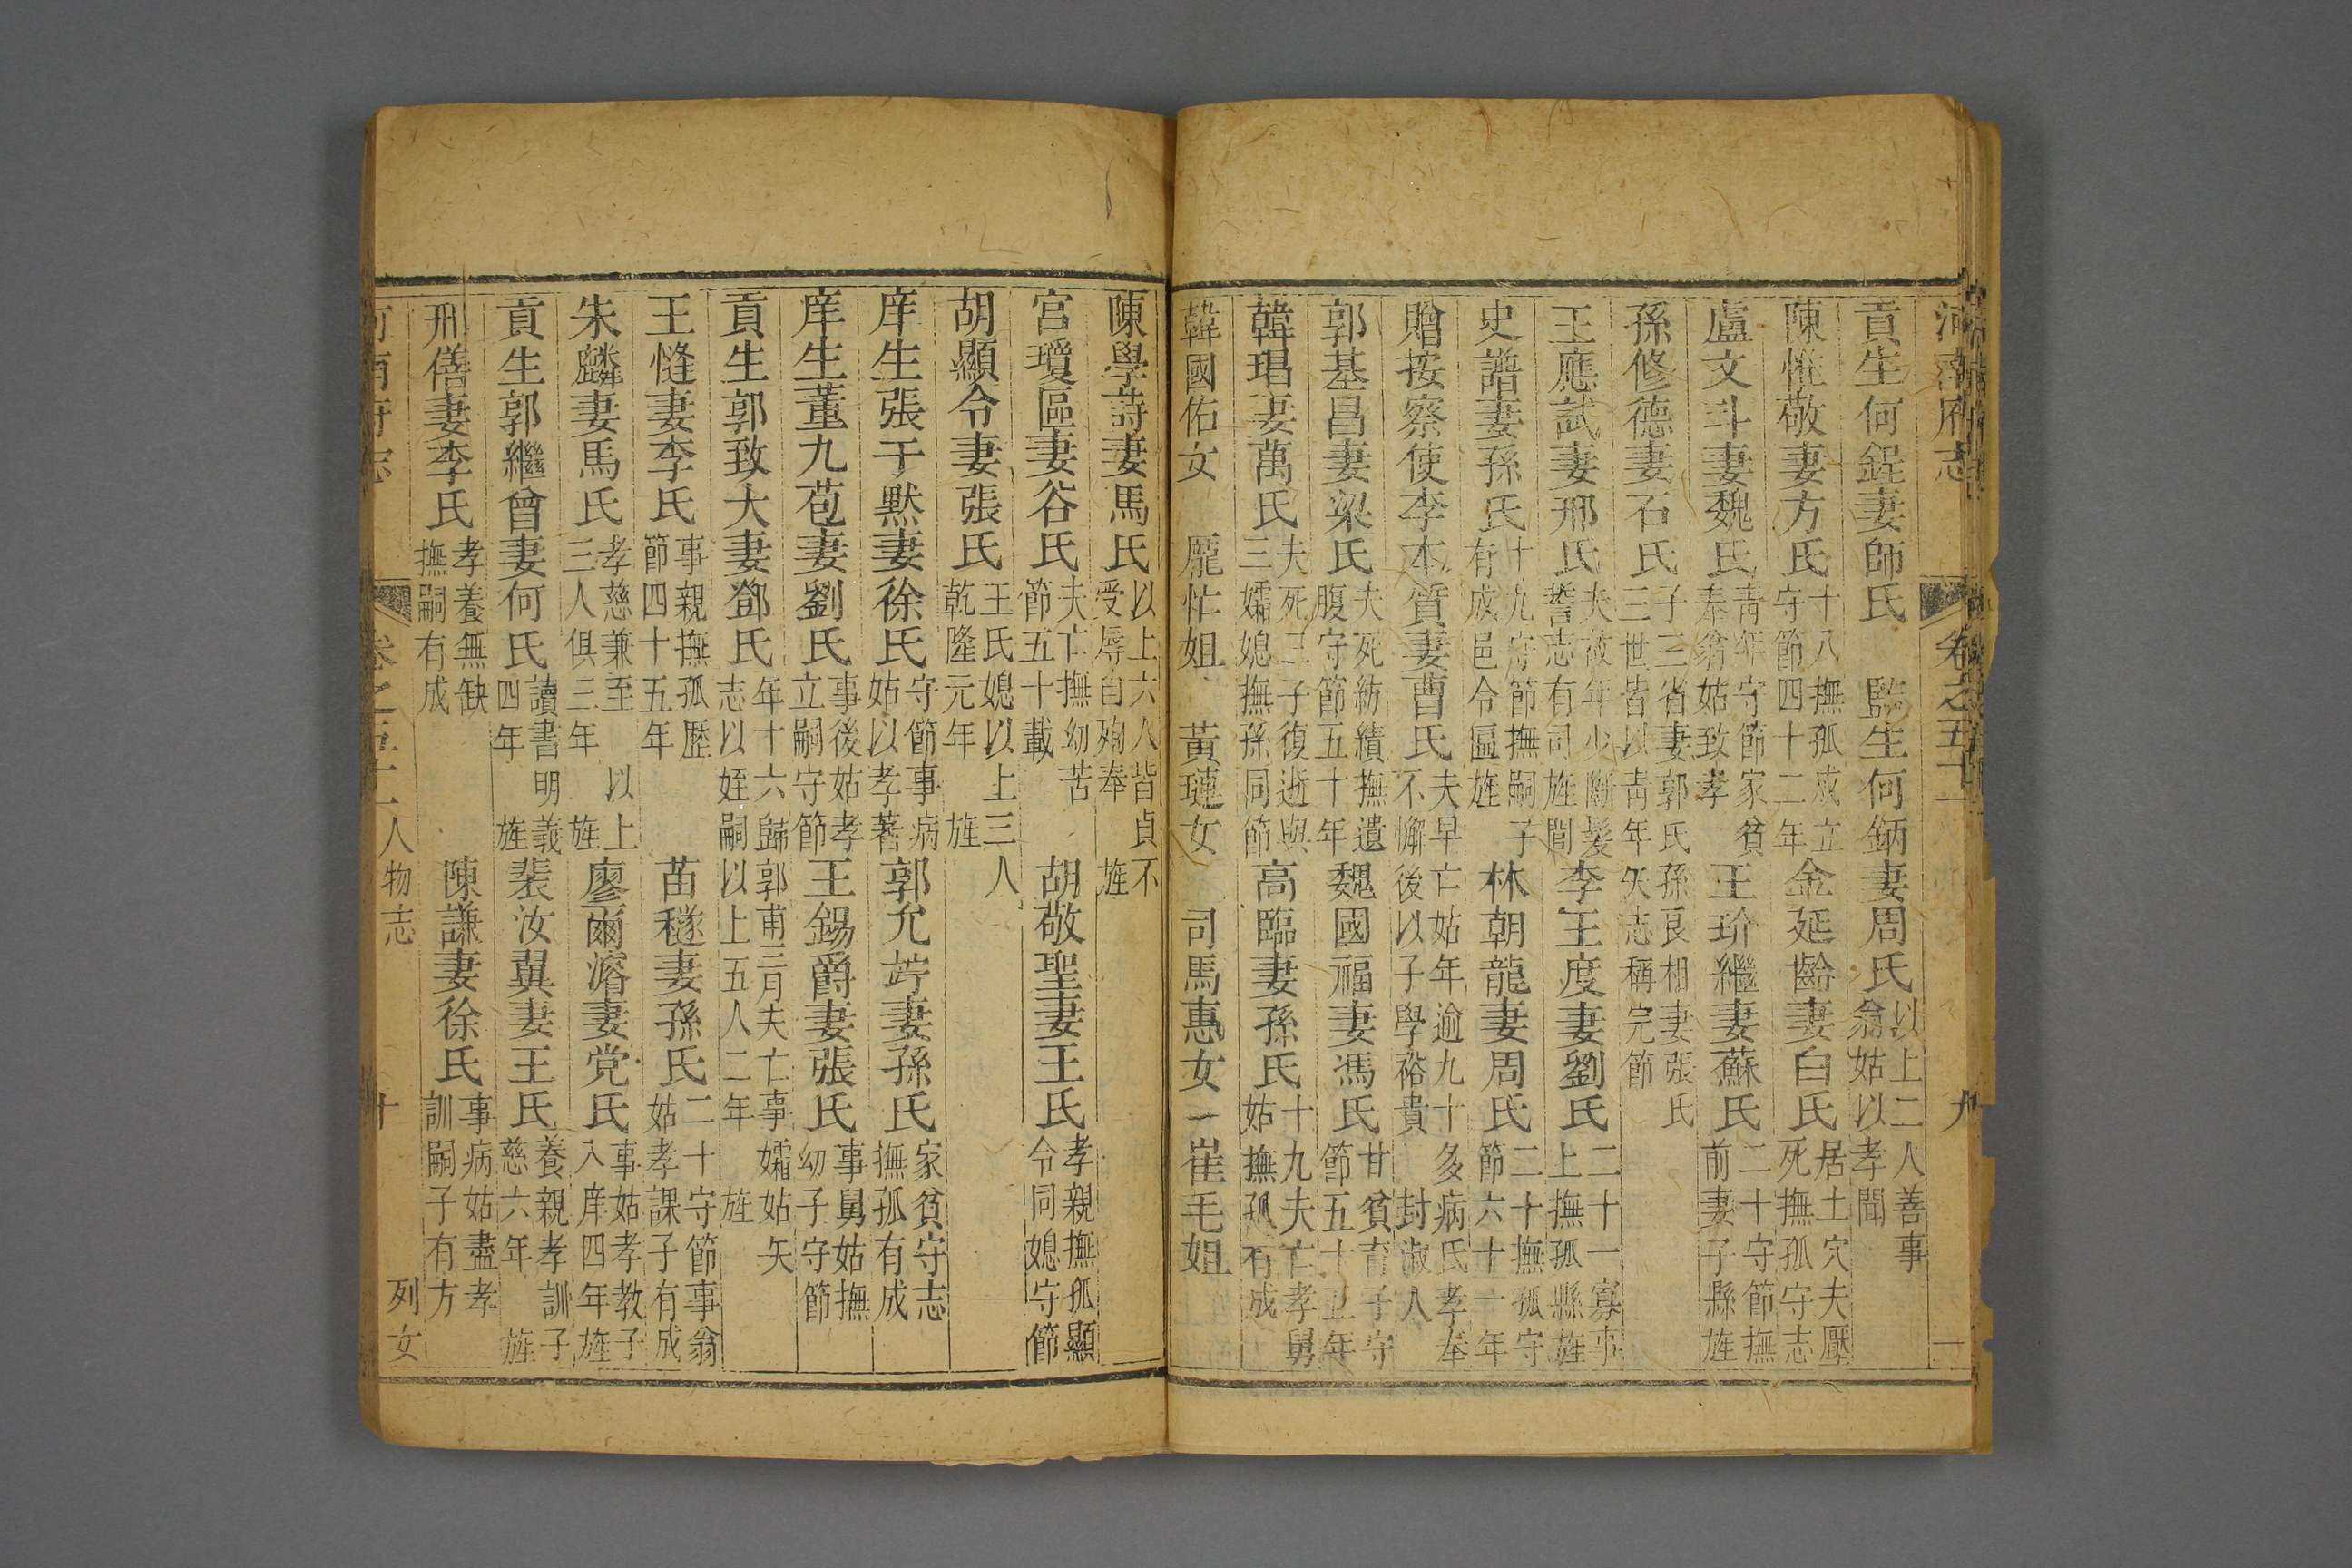 河南府志 卷之五十一 九
貢生何鋥妻師氏 監生何鈵妻周氏 以上二人善事翁姑以孝聞
陳惟敬妻方氏 十八撫孤成立守節四十二年 金延齡妻白氏 居土穴夫壓死撫孤守志
盧文斗妻魏氏 青年守節家貧奉翁姑致孝 王玠繼妻蘇氏 二十守節撫前妻子縣旌
孫修德妻石氏 子三省妻郭氏孫良相妻張氏三世皆以青年矢志稱完節
王應試妻邢氏 夫故年少斷髮誓志有司旌閭 李王度妻劉氏 二十一寡事上撫孤縣旌
史譜妻孫氏 十九守節撫嗣子有成邑令匾旌 林朝龍妻周氏 二十撫孤守節六十一年
贈按察使李本質妻曹氏 夫早亡姑年逾九十多病氏孝奉不懈後以子學裕貴封淑人
郭基昌妻梁氏 夫死紡績撫遺腹守節五十年 魏國福妻馮氏 甘貧育子守節五十五年
韓琩妻萬氏 夫死三子復逝與三孀媳撫孫同節 高臨妻孫氏 十九夫亡孝舅姑撫孤有成
韓國佑女 龎忙姐 黃璉女 司馬惠女 一崔毛姐
陳學詩妻馬氏 以上六人皆貞不受辱自殉奉旌
宮瓊區妻谷氏 夫亡撫幼苦節五十載 胡敬聖妻王氏 孝親撫孤顯令同媳守節
胡顯令妻張氏 王氏媳以上三人乾隆元年旌
庠生張于黙妻徐氏 守節事病姑以孝著 郭允竚妻孫氏 家貧守志撫孤有成
庠生董九苞妻劉氏 事後姑孝立嗣守節 王錫爵妻張氏 事舅姑撫幼子守節
貢生郭致大妻鄧氏 年十六歸郭甫三月夫亡事孀姑矢志以姪嗣以上五人二年旌
王㦀妻李氏 事親撫孤歷節四十五年 苗穟妻孫氏 二十守節事翁姑孝課子有成
朱麟妻馬氏 孝慈兼至以上三人俱三年旌 廖爾濬妻党氏 事姑孝教子入庠四年旌
貢生郭繼曾妻何氏 讀書明義四年旌 裴汝翼妻王氏 養親孝訓子慈六年旌
邢僐妻李氏 孝養無缺撫嗣有成 陳謙妻徐氏 事病姑盡孝訓嗣子有方
河南府志 卷之五十一 人物志 十 列女